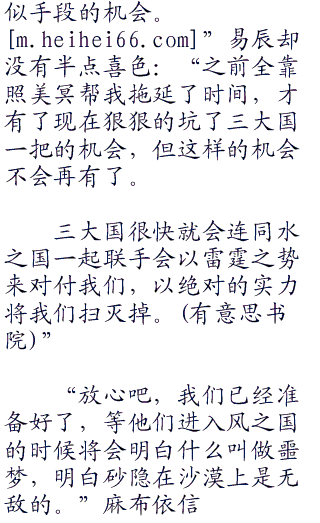 似手段的机会。
[m.heihei66.com]”易辰却
没有半点喜色：“之前全靠
照美冥帮我拖延了时间，才
有了现在狠狠的坑了三大国
一把的机会，但这样的机会
不会再有了。
三大国很快就会连同水
之国一起联手会以雷霆之势
来对付我们，以绝对的实力
将我们扫灭掉。(有意思书
院)”
“放心吧，我们已经准
备好了，等他们进入风之国
的时候将会明白什么叫做噩
梦，明白砂隐在沙漠上是无
敌的。”麻布依信